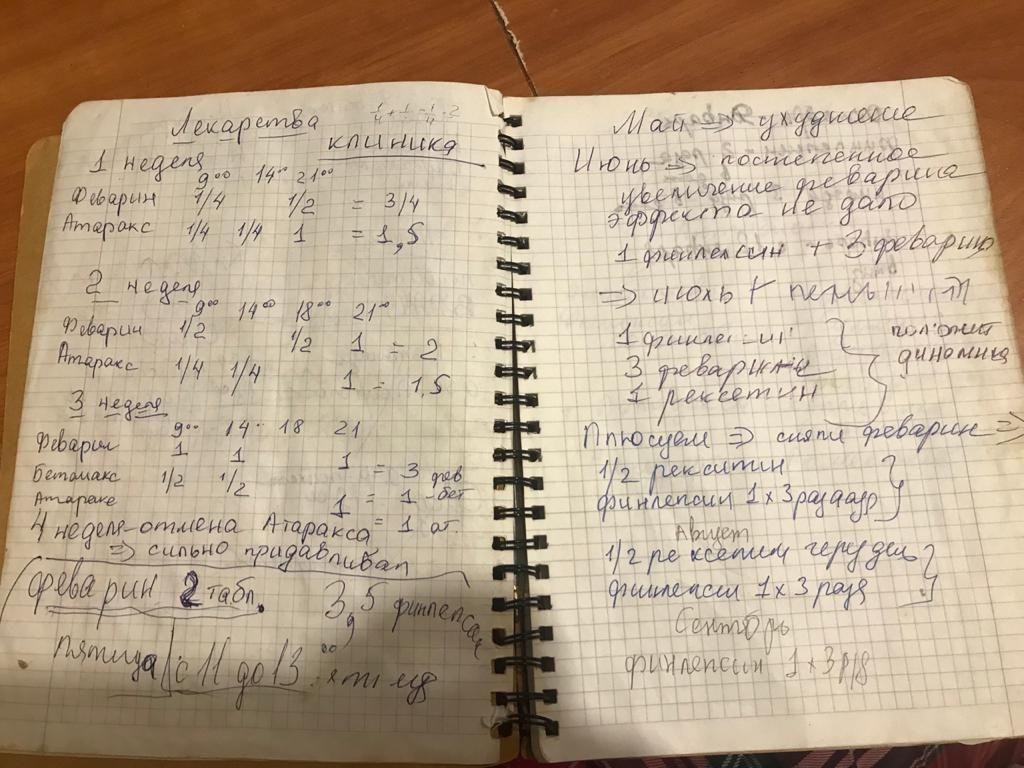 Лекарства
клиника
1 неделя
9⁰⁰ 14⁰⁰ 21⁰⁰
Феварин 1/4 1/2 = 3/4
Атаракс 1/4 1/4 1 = 1,5
2 неделя
9⁰⁰ 14⁰⁰ 18⁰⁰ 21⁰⁰
Феварин 1/2 1/2 1 = 2
Атаракс 1/4 1/4 1 = 1,5
3 неделя
9⁰⁰ 14⁰⁰ 18 21
Феварин 1 1 1 = 3 фев
Бетамакс 1/2 1/2 = 1 - бет
Атаракс 1 = 1 ат.
4 неделя - отмена Атаракса
=> сильно придавливал
феварин 2 табл. 3,5 финлепсин
Пятница с 11 до 13⁰⁰
Май => ухудшение
Июнь => постепенное
увеличение феварина
эффекта не дало
1 финлепсин + 3 феварин
=> июль +
1 финлепсин
3 феварина
1 рексетин
полжит
динамика
Плюсуем => сняли феварин =>
1/2 рекситин
финлепсин 1 х 3 раза
Август
1/2 рексетин через день
финлепсин 1 х 3 раза
Сентябрь
финлепсин 1 х 3 р/д